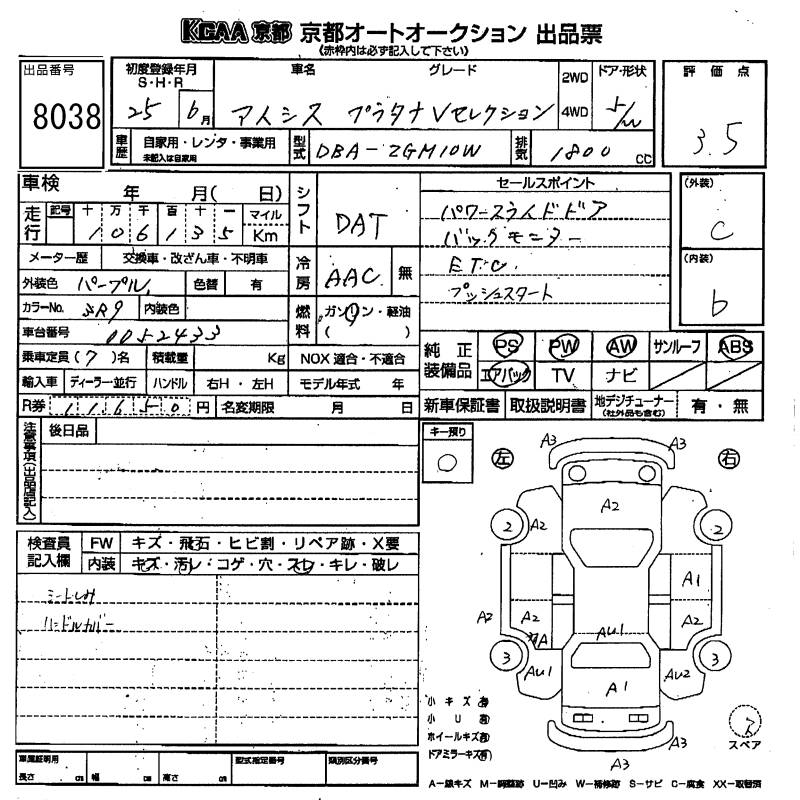 KCAA 京都 京都オートオークション 出品票
《赤枠内は必ず記入して下さい》
出品番号
8038
初度登録年月
S・H・R
25 6月
車名
グレード
アイシス プラタナ Vセレクション
2WD
4WD
ドア・形状
5/W
評価点
3.5
車歴
自家用・レンタ・事業用
未記入は自家用
型式
DBA-ZGM10W
排気
1800 cc
車検 年 月( 日)
走行
記号 十 万 千 百 十 一 マイル
1 0 6 1 3 5 Km
シフト
DAT
セールスポイント
パワースライドドア
バックモニター
ETC.
プッシュスタート
(外装)
C
(内装)
b
メーター歴 交換車・改ざん車・不明車
外装色 パープル 色替 有
冷房
AAC 無
カラーNo. 3R9 内装色
燃料
ガソリン・軽油
( )
車台番号 0052433
乗車定員(7)名 積載量 Kg NOX適合・不適合
輸入車 ディーラー・並行 ハンドル 右H・左H モデル年式 年
R券 11650円 名変期限 月 日
純正装備品
PS PW AW サンルーフ ABS
エアバック TV ナビ
新車保証書 取扱説明書 地デジチューナー (社外品も含む) 有・無
注意事項(出品店記入)
後日品
キー預り
○
左
右
検査員記入欄
FW キズ・飛石・ヒビ割・リペア跡・X要
内装 キズ・汚レ・コゲ・穴・スレ・キレ・破レ
シートしみ
ハンドルカバー
A3 A3
A2
2 A2 2
A1
A2 A2 A2
AU1
3 3
AU1 A1 AU2
A3 A3
A3
小キズ 有
小U 有
ホイールキズ 有
ドアミラーキズ 有
スペア
車庫証明用
長さ cm 幅 cm 高さ cm
型式指定番号
類別区分番号
A-線キズ M-調整跡 U-凹み W-補修跡 S-サビ C-腐食 XX-交換済